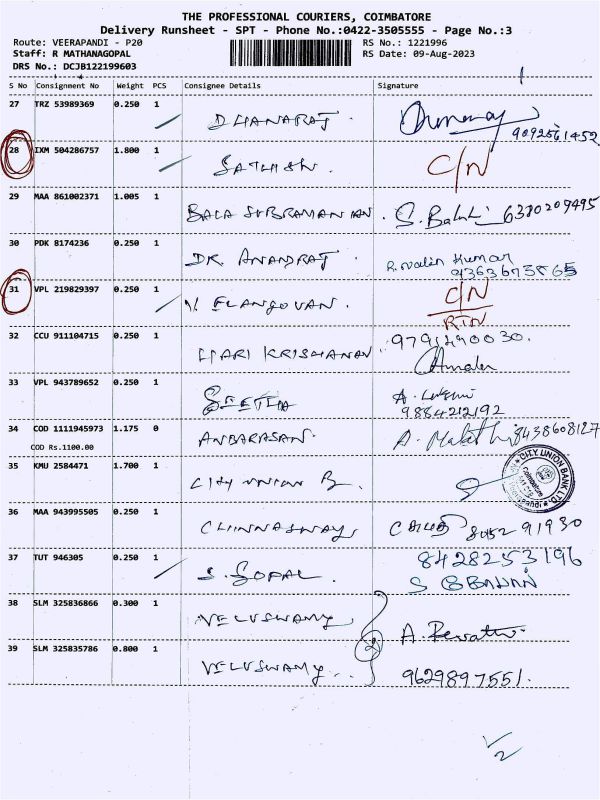 THE PROFESSIONAL COURIERS, COIMBATORE
Delivery Runsheet - SPT - Phone No.:0422-3505555 - Page No.:3
Route: VEERAPANDI - P20 RS No.: 1221996
Staff: R MATHANAGOPAL RS Date: 09-Aug-2023
DRS No.: DCJB122199603
S No Consignment No Weight PCS Consignee Details Signature
27 TRZ 53989369 0.250 1 DHANARAJ. 9092561452
28 IXM 504286757 1.800 1 SATHISH. C/N
29 MAA 861002371 1.005 1 BALA SUBRAMANIAN. S. Balu 6380209495
30 PDK 8174236 0.250 1 DR. ANANDRAJ R. Nalin Kumar
9363673865
31 VPL 219829397 0.250 1 V ELANGOVAN. C/N
RTN
32 CCU 911104715 0.250 1 HARI KRISHANAN.
33 VPL 943789652 0.250 1 GEETHA
9884212192
34 COD 1111945973 1.175 0 ANBARASAN. A. Malathi 8438608127
COD Rs.1100.00
35 KMU 2584471 1.700 1 CITY UNION B. CITY UNION BANK LTD.
Coimbatore
36 MAA 943995505 0.250 1 CHINNASWAY 8052 91930
37 TUT 946305 0.250 1 S. GOPAL. 8428253196
38 SLM 325836866 0.300 1 VELUSWAMY A. Revathi
2
39 SLM 325835786 0.800 1 VELUSWAMY.. 9629897551.